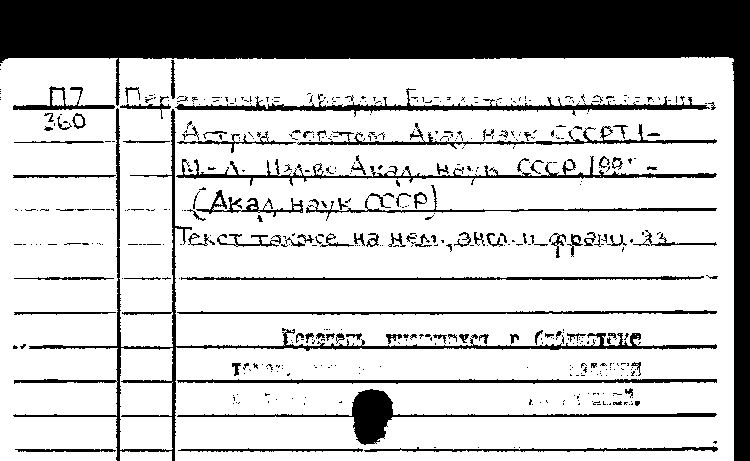 П7 Переменные звезды Бюллетень издаваемый
360
Астрон. советом Акад. наук СССР Т.1-
М.-Л., Изд-во Акад. наук СССР,
(Акад. наук СССР)
Текст также на нем., англ. и франц. яз.
Перечень имеющихся в библиотеке